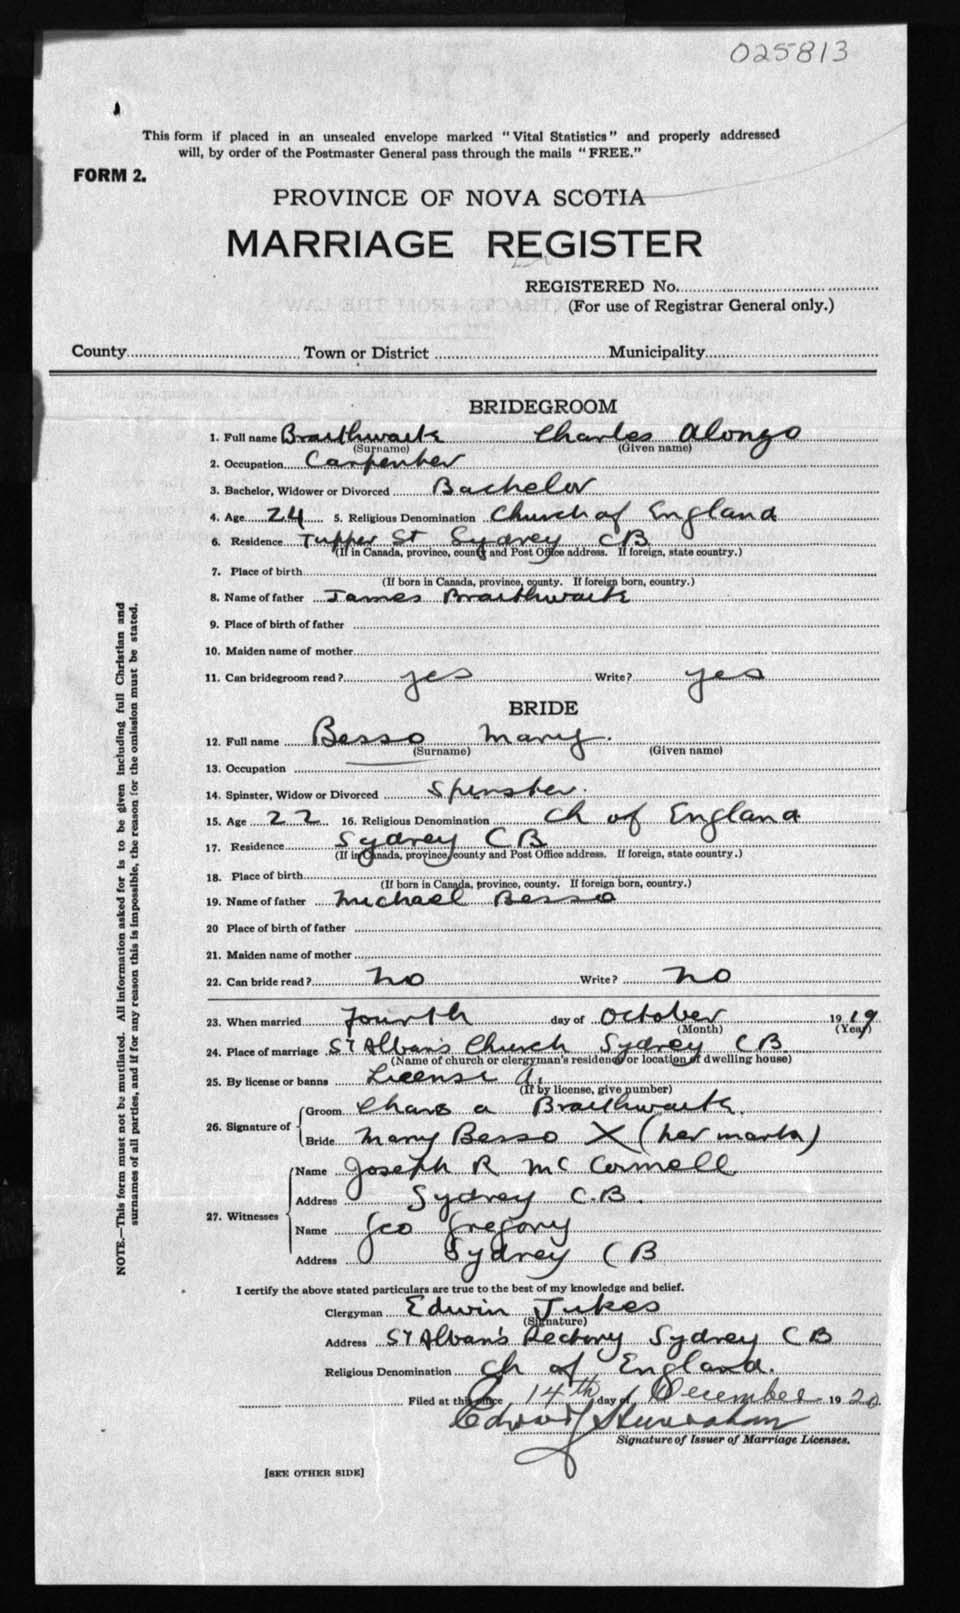 025813
This form if placed in an unsealed envelope marked "Vital Statistics" and properly addressed
will, by order of the Postmaster General pass through the mails "FREE."
FORM 2.
PROVINCE OF NOVA SCOTIA
MARRIAGE REGISTER
REGISTERED No.
(For use of Registrar General only.)
County Town or District Municipality
BRIDEGROOM
1. Full name Braithwaite Charles Alongo
(Surname) (Given name)
2. Occupation Carpenter
3. Bachelor, Widower or Divorced Bachelor
4. Age 24 5. Religious Denomination Church of England
6. Residence Tupper St Sydney CB
(If in Canada, province, county and Post Office address. If foreign, state country.)
7. Place of birth
(If born in Canada, province, county. If foreign born, country.)
8. Name of father James Braithwaite
9. Place of birth of father
10. Maiden name of mother
11. Can bridegroom read? yes Write? yes
BRIDE
12. Full name Besso Mary.
(Surname) (Given name)
13. Occupation
14. Spinster, Widow or Divorced Spinster.
15. Age 22 16. Religious Denomination Ch of England
17. Residence Sydney CB
(If in Canada, province, county and Post Office address. If foreign, state country.)
18. Place of birth
(If born in Canada, province, county. If foreign born, country.)
19. Name of father Michael Besso
20 Place of birth of father
21. Maiden name of mother
22. Can bride read? no Write? no
23. When married fourth day of October 1919
(Month) (Year)
24. Place of marriage St Alban's Church Sydney CB
(Name of church or clergyman's residence or location of dwelling house)
25. By license or banns License
(If by license, give number)
26. Signature of
Groom Chas a Braithwaite.
Bride Mary Besso X (her mark)
27. Witnesses
Name Joseph R McCormell
Address Sydney C.B.
Name Geo Gregory
Address Sydney CB
I certify the above stated particulars are true to the best of my knowledge and belief.
Clergyman Edwin Jukes
(Signature)
Address St Alban's Rectory Sydney CB
Religious Denomination Ch of England.
Filed at this office 14th day of December 1920.
Signature of Issuer of Marriage Licenses.
[SEE OTHER SIDE]
NOTE.—This form must not be mutilated. All information asked for is to be given including full Christian and
surnames of all parties, and if for any reason this is impossible, the reason for the omission must be stated.